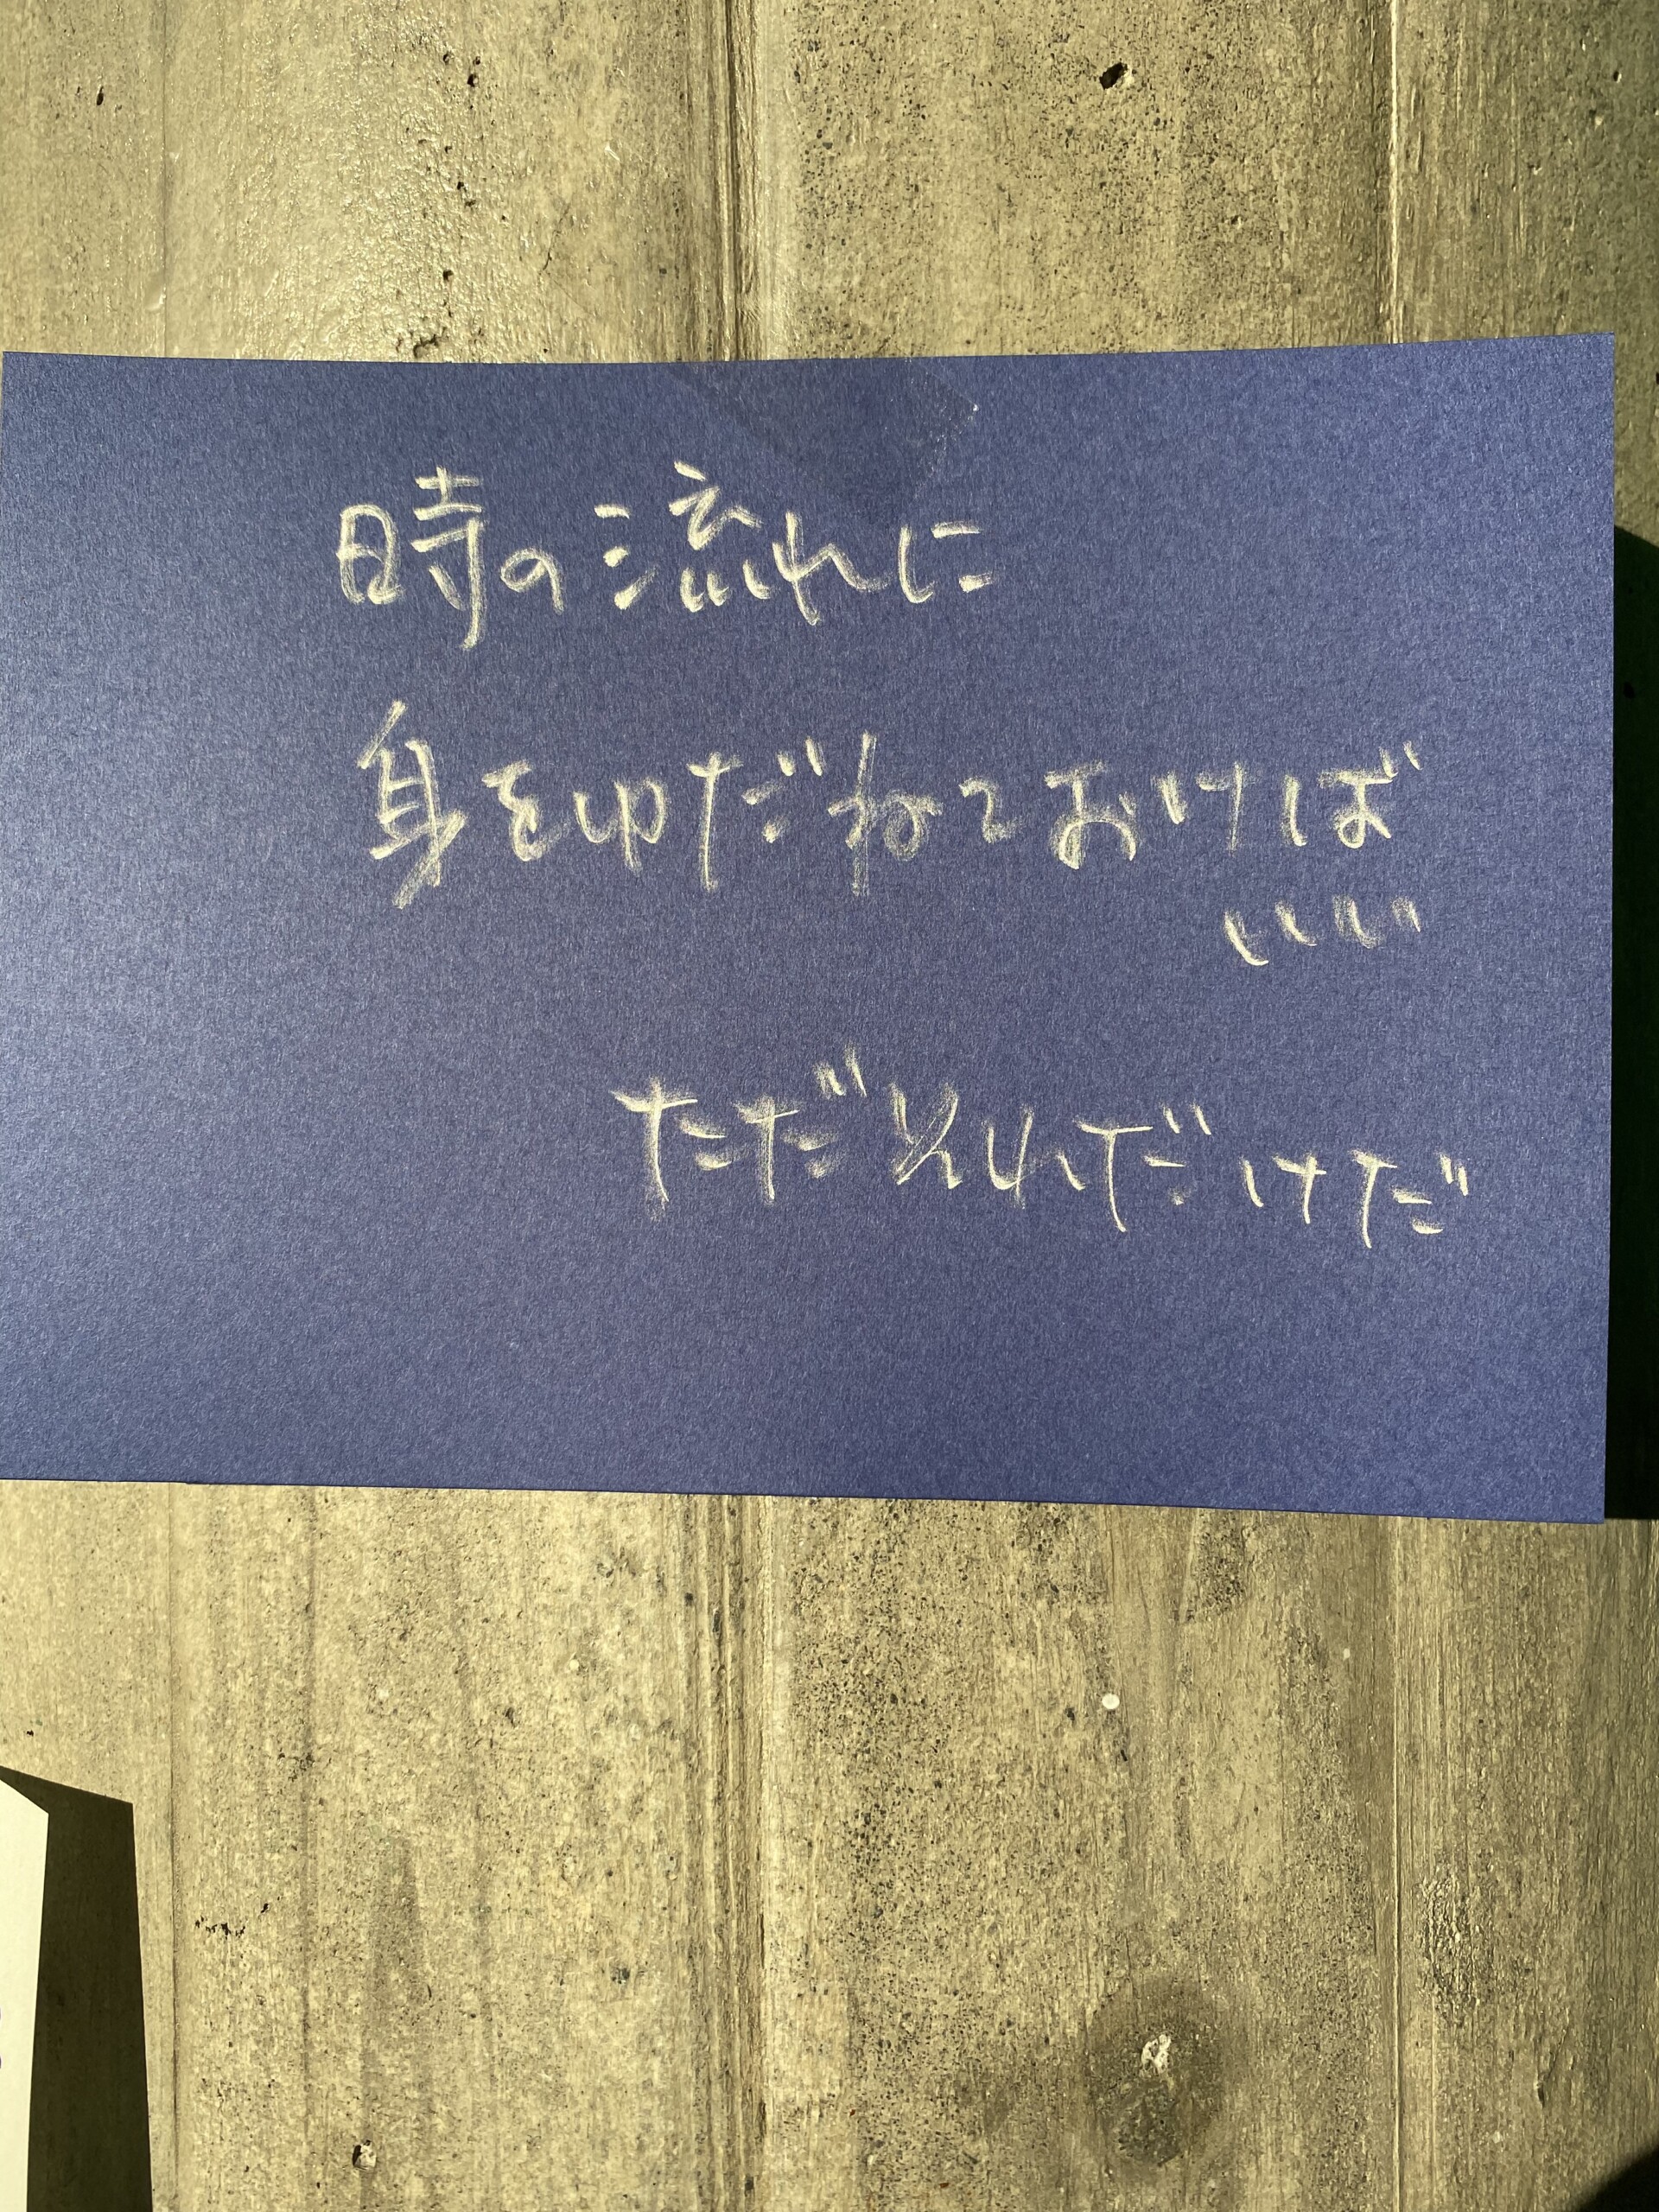 時の流れに
身をゆだねておけば
いい
ただそれだけだ